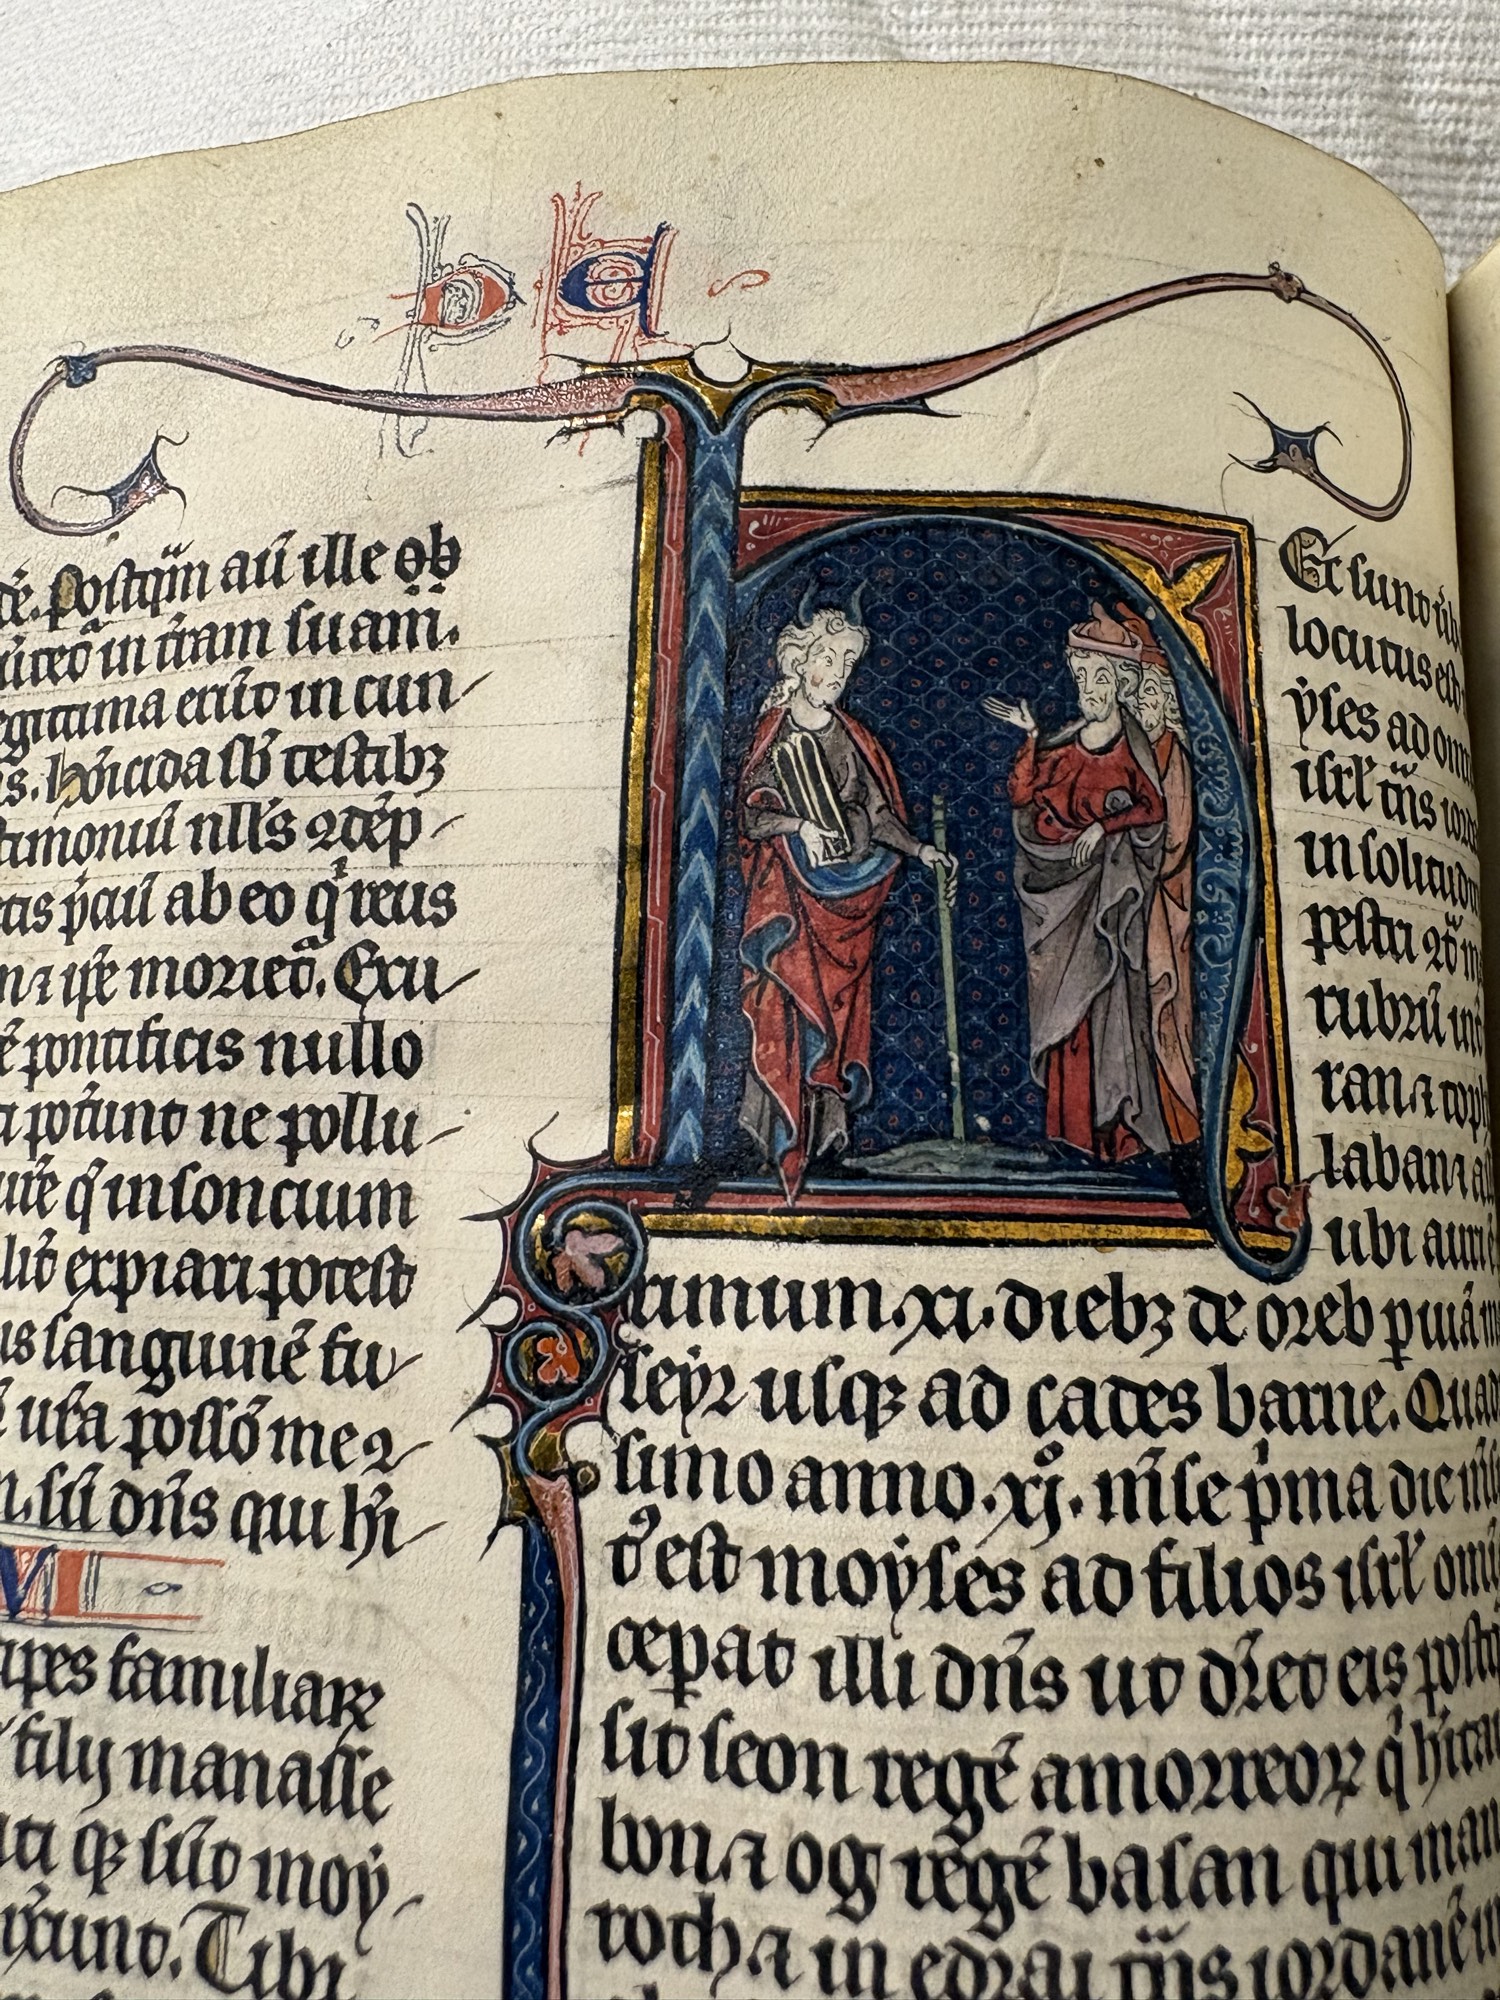 D E
postq̄m aū ille ob
in t̄ram suam.
egittima erūt in cun
s. hōicida sb̄ testibꝫ
timoniū nll's ꝯdēp
p̄caū ab eo qͥ reus
n ⁊ ip̄e moriet᷑. Exu
ē pontificis nullo
pot̄unt ne pollu
q̄ insoncium
lit̄ expiari potest
is sanguinē fu
ur̄a possō me ꝯ
n. sū dn̄s qui hī
VI
cipes familiaꝝ
filij manasse
ati qꝫ sūt moy
xunt. Tibi
Et sunt ūb
locutus est
ẏses ad om
isrł tn̄s iord
in solitudi
pestri ꝯt̄ m
rubrū int̄
ran ⁊ toph
laban ⁊ as
ubi auri ē
rimum. xi. diebꝫ de oreb p̱ uiā m
seyr usqꝫ ad cades barne. Quad
simo anno. xͦj. mn̄se pͥma die mn̄s
est moẏses ad filios isrł om̄
ceperat illi dn̄s ut dīet eis postq̄
sit seon regē amorreoꝝ qͥ hītau
bon ⁊ og regē basan qui man
roth ⁊ in edrai tn̄s iordanē in